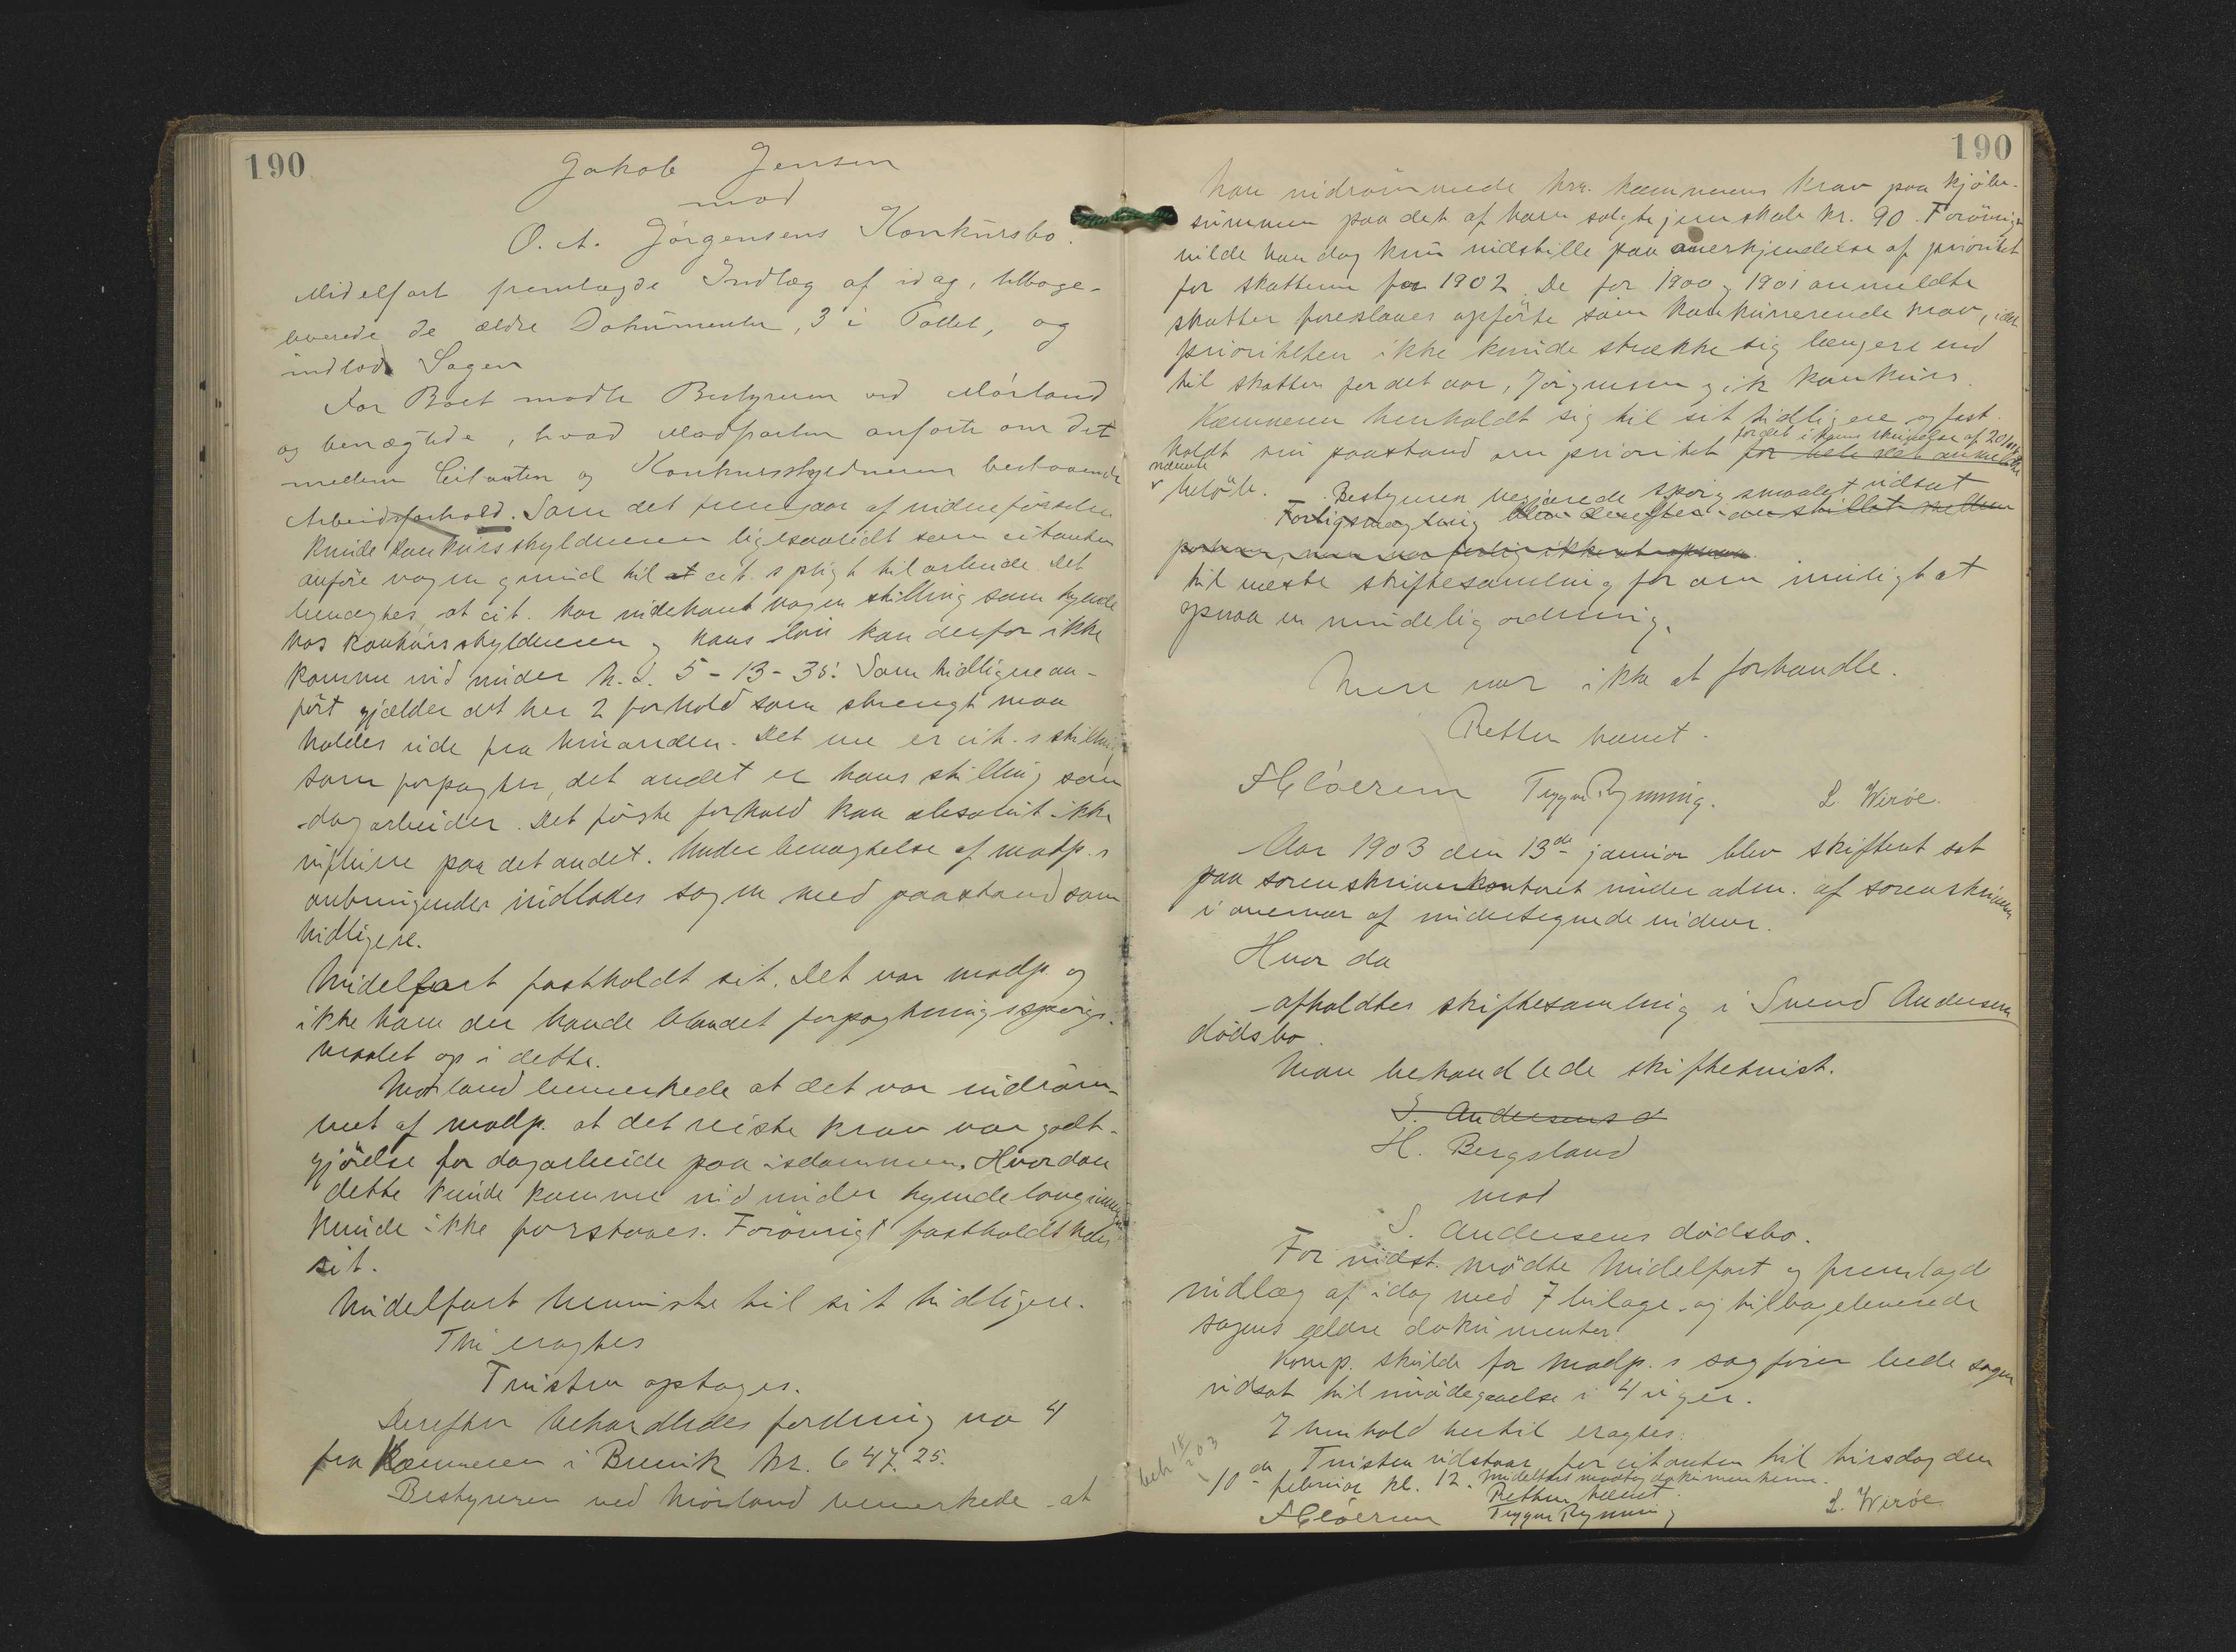 190
Jakob Jensen
mod
O. A. Jørgensens Konkursbo.
Midelfart fremlagde Indlæg af idag, tilbage-
leverede de ældre Dokumenter, 3 i Tallet, og
indlod Sagen
For Boet mødte Bestyreren ved Mørland
og benægtede, hvad Modparten anførte om det
mellem Citanten og Konkursskyldneren bestaaende
Arbeidsforhold. Som det fremgaar af vidneførselen
kunde konkursskyldneren ligesaalidt som citanten
anføre nogen grund til at cit.s pligt til arbeide. Det
benægtes, at cit. har indehavt nogen stilling som tyende
hos konkursskyldneren og hans løn kan derfor ikke
komme ind under N. L. 5-13-35. Som tidligere an-
ført gjælder det her 2 forhold som strengt maa
holdes ude fra hinanden. Det ene er cit.s stilling
som forpagter, det andet er hans stilling som
dagarbeider. Det første forhold kan absolut ikke
influere paa det andet. Under benægtelse af modp.s
anbringender indlodes sagen med paastand som
tidligere.
Midelfart fastholdt sit. Det var modp. og
ikke ham der havde blandet forpagtningsspørgs-
maalet op i dette.
Mørland bemerkede at det var indrøm-
met af modp. at det reiste krav var godt-
gjørelse for dagarbeide paa isdammen. Hvordan
dette kunde komme ind under tyendelovgivningen
kunde ikke forstaaes. Forøvrigt fastholdtes
sit.
Midelfart henviste til sit tidligere.
Thi eragtes
Tvisten optages.
Derefter behandledes fordring no 4
fra Kæmneren i Brevik kr. 647.25.
Bestyreren ved Mørland bemerkede at
190
han indrømmede hrr. kæmnerens krav paa kjøbe-
summen paa det af ham solgte jernskab kr. 90. Forøvrigt
vilde han dog kun indstille paa anerkjendelse af prioritet
for skatterne for 1902. De for 1900 og 1901 anmeldte
skatter foresloges opførte som konkurrerende krav, idet
prioriteten ikke kunde strække sig længere end
til skatten for det aar, Jørgensen gik konkurs.
Kæmneren henholdt sig til sit tidligere og fast-
fordet i hans skrivelse af 20/
holdt sin paastand om prioritet for hele det anmeldte
nævnte
beløb. Bestyreren begjærede spørgsmaalet udsat
Forligsmægling blev derefter anstillet mellem
parterne, men var forlig ikke at opnaa.
til næste skiftesamling for om muligt at
opnaa en mindelig ordning.
Mere var ikke at forhandle.
Retten hævet.
Trygve Rynning. L. Wirøe.
Aar 1903 den 13de januar blev skifteret sat
paa sorenskriverkontoret under adm. af sorenskriveren
i overvær af undertegnede vidner.
Hvor da
afholdtes skiftesamling i Svend Andersens
dødsbo.
Man behandlede skiftetvist.
S. Andersens d
H. Bergsland
mod
S. Andersens dødsbo.
For indst. mødte Midelfart og fremlagde
indlæg af idag med 7 bilage og tilbageleverede
sagens ældre dokumenter.
Komp. skulde for modp.s sagfører bede sagen
udsat til imødegaaelse i 4 uger.
I henhold hertil eragtes:
Tvisten udstaar for citanten til tirsdag den
10de februar kl. 12. Midelfart modtog dokumenterne.
Retten hævet.
Trygve Rynning L. Wirøe